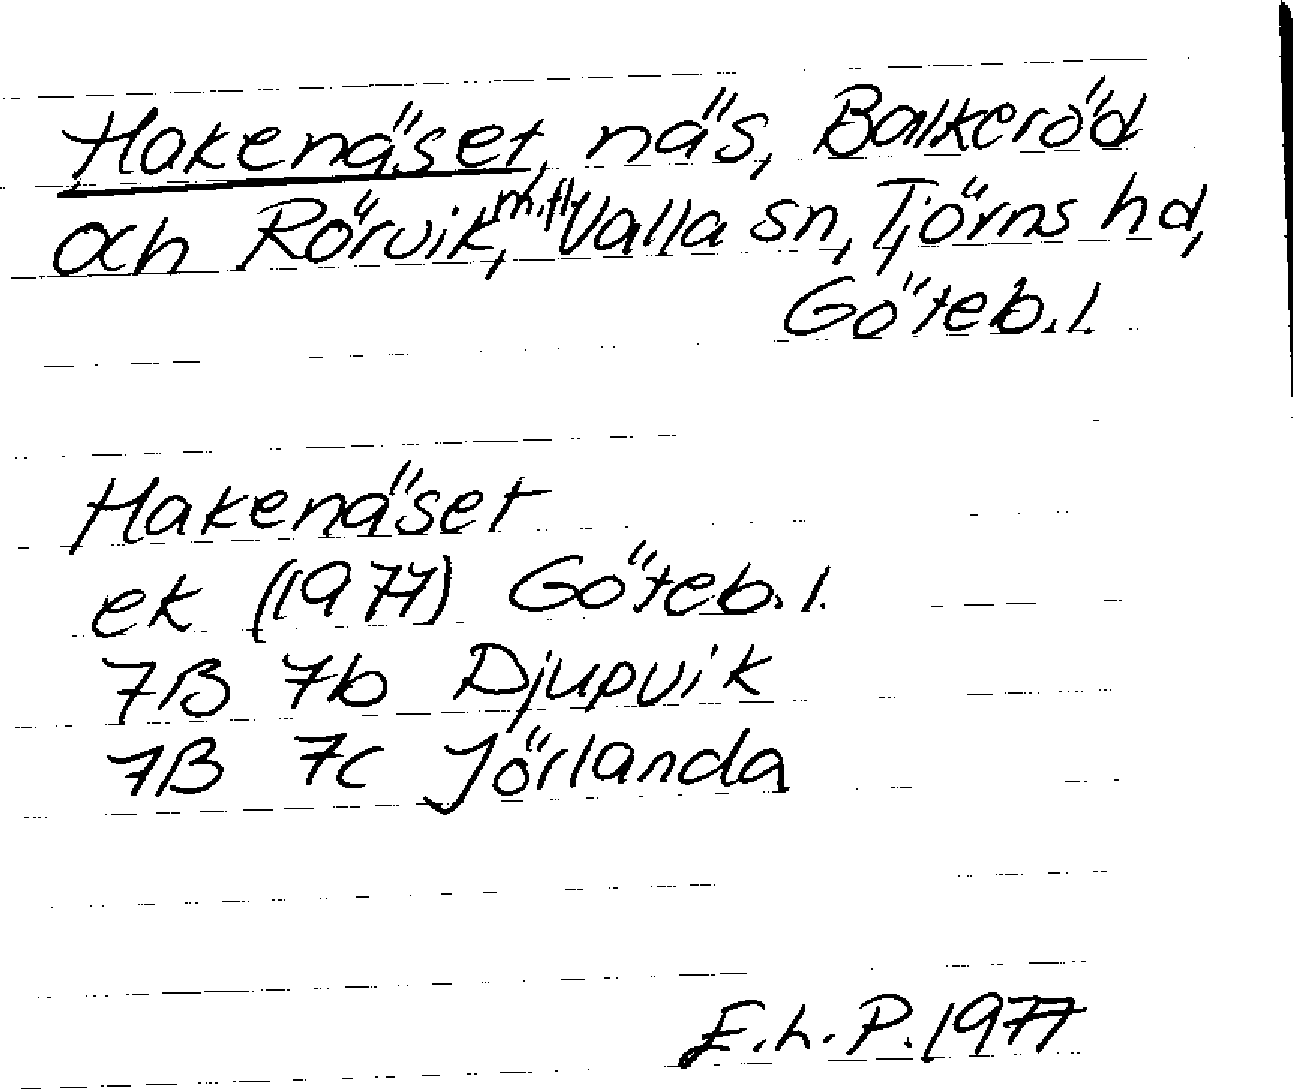 Hakenäset, näs, Balkeröd
och Rörvik, m.fl. Valla sn, Tjörns hd,
Göteb.l.
Hakenäset
ek (1977) Göteb.l.
7B 7b Djupvik
7B 7c Jörlanda
E.L.P. 1977